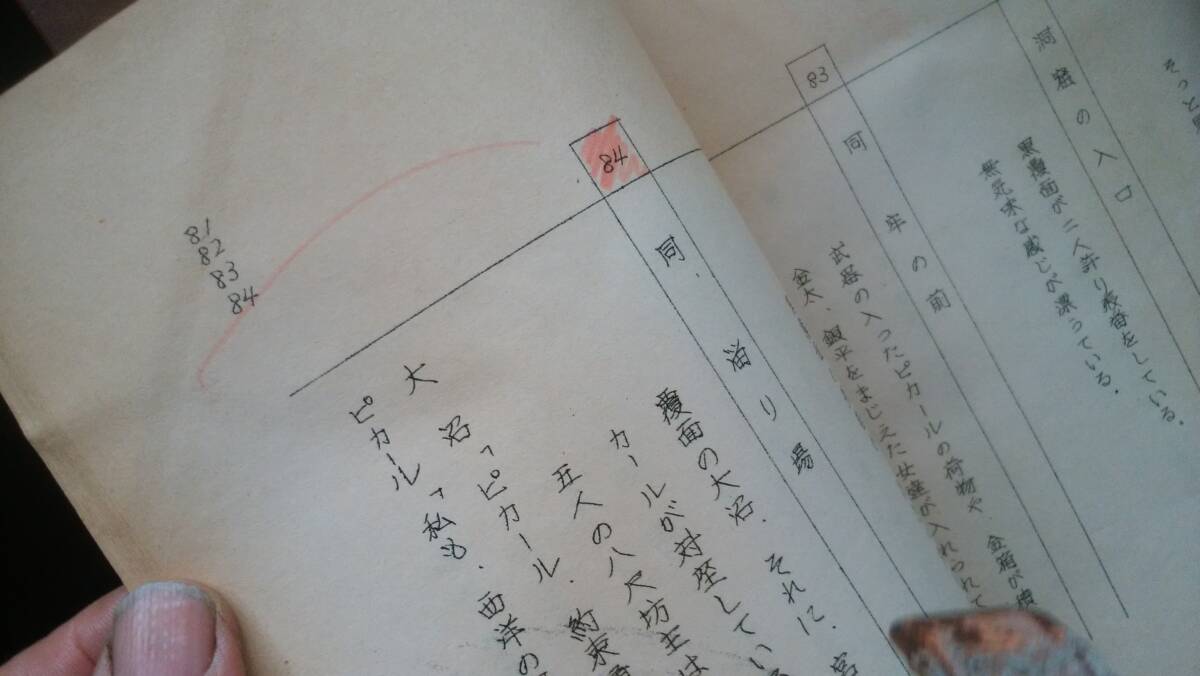 そっと
洞窟の入口
黒覆面が二人許り張番をしている.
無気味な感じが漂っている.
83
同 牢の前
武器の入ったピカールの荷物や、金箱が積
金太、銀平をまじえた女達が入れられて
84
同. 溜り場
覆面の大沼. それに. 宮
カールが対座してい
五人の八尺坊主は
大沼「ピカール. 約束
ピカール「私も. 西洋の
81
82
83
84